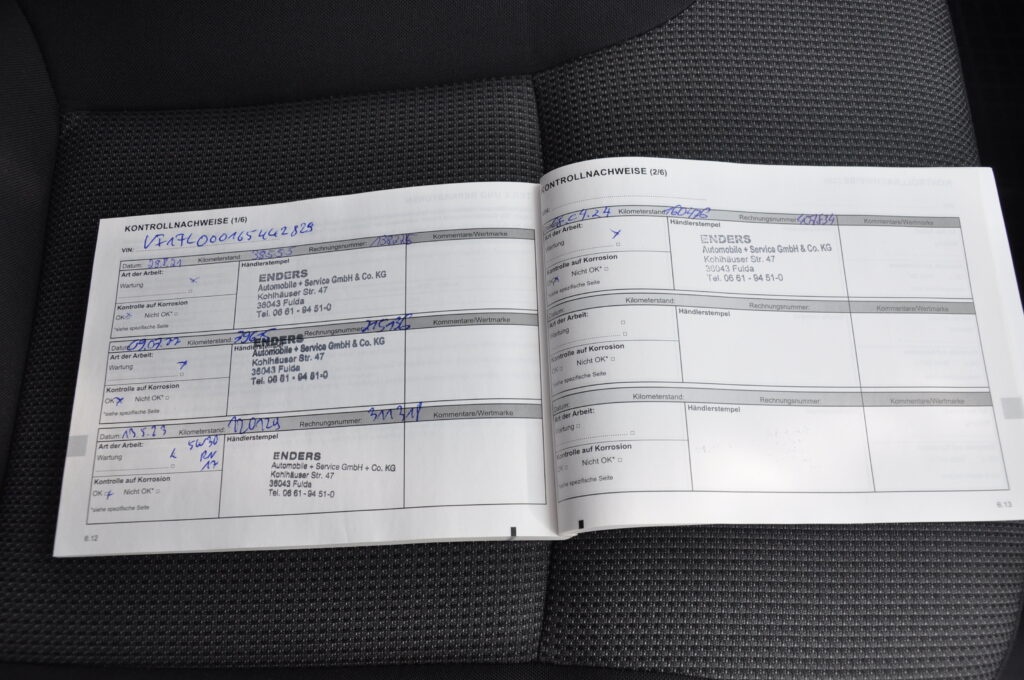 KONTROLLNACHWEISE (1/6)
VIN: VF17L000165442829
Datum: Kilometerstand Rechnungsnummer: Kommentare/Wertmarke
Art der Arbeit: Händlerstempel
Wartung
ENDERS
Automobile + Service GmbH & Co. KG
Kohlhäuser Str. 47
36043 Fulda
Tel. 06 61 - 94 51-0
Kontrolle auf Korrosion
OK Nicht OK* □
*siehe spezifische Seite
Datum 09.07.22 Kilometerstand: Rechnungsnummer: Kommentare/Wertmarke
Art der Arbeit:
Wartung
ENDERS
Automobile + Service GmbH & Co. KG
Kohlhäuser Str. 47
36043 Fulda
Tel. 06 61 - 94 51-0
Kontrolle auf Korrosion
OK Nicht OK* □
*siehe spezifische Seite
Datum 13.5.23 Kilometerstand: 120129 Rechnungsnummer: 311317 Kommentare/Wertmarke
Art der Arbeit: Händlerstempel
Wartung 5W30
RN
17
ENDERS
Automobile + Service GmbH + Co. KG
Kohlhäuser Str. 47
36043 Fulda
Tel. 06 61 - 94 51-0
Kontrolle auf Korrosion
OK Nicht OK* □
*siehe spezifische Seite
6.12
KONTROLLNACHWEISE (2/6)
VIN:
Kilometerstand: 160426 Rechnungsnummer: Kommentare/Wertmarke
Art der Arbeit: Händlerstempel
Wartung
ENDERS
Automobile + Service GmbH & Co. KG
Kohlhäuser Str. 47
36043 Fulda
Tel. 06 61 - 94 51-0
Kontrolle auf Korrosion
OK Nicht OK* □
*siehe spezifische Seite
Datum: Kilometerstand: Rechnungsnummer: Kommentare/Wertmarke
Art der Arbeit: Händlerstempel
Wartung
Kontrolle auf Korrosion
OK □ Nicht OK* □
*siehe spezifische Seite
Datum: Kilometerstand: Rechnungsnummer: Kommentare/Wertmarke
Art der Arbeit: Händlerstempel
Wartung □
Kontrolle auf Korrosion
OK □ Nicht OK* □
*siehe spezifische Seite
6.13